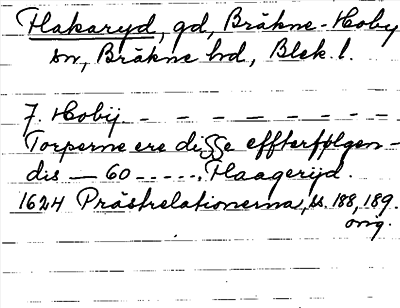 Hakaryd, gd, Bräkne-Hoby
sn, Bräkne hd, Blek. l.
7. Hobij - - - - - - - -
Torperne ere disse effterfølgen-
dis — 60 - - - - -. Haagerijd.
1624 Prästrelationerna, ss. 188, 189.
orig.